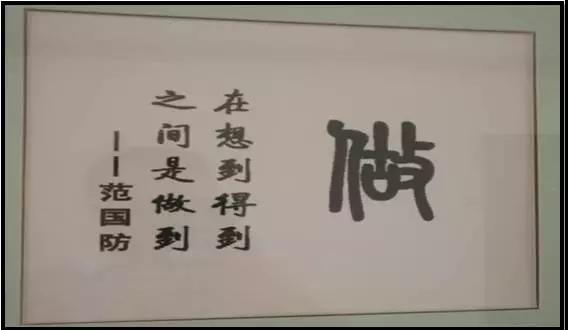 做
在想到得到
之间是做到
——范国防